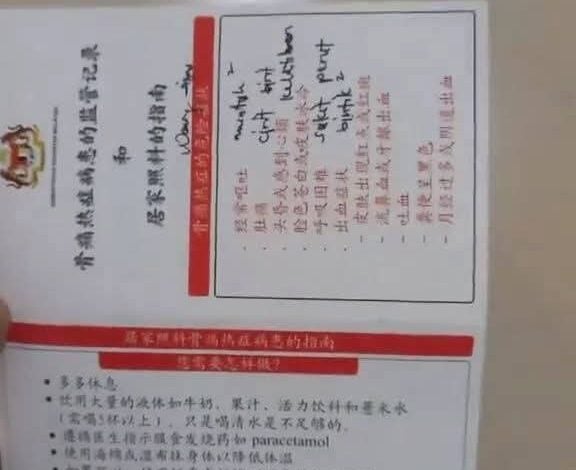 骨痛热症病患的监管记录
和
居家照料的指南
骨痛热症的危险症状
muntah 2
cirit birit
keletihan
sakit perut
bintik 2
· 经常呕吐
· 肚痛
· 头昏或感到心烦
· 脸色苍白或皮肤冰冷
· 呼吸困难
· 出血症状
- 皮肤出现红点或红斑
- 流鼻血或牙龈出血
- 吐血
- 粪便呈黑色
- 月经过多或阴道出血
居家照料骨痛热症病患的指南
您需要怎样做?
• 多多休息
• 饮用大量的液体如牛奶、果汁、活力饮料和薏米水
(需喝5杯以上), 只是喝清水是不足够的。
• 遵循医生指示服食发烧药如 paracetamol
• 使用海绵或湿布抹身体以降低体温